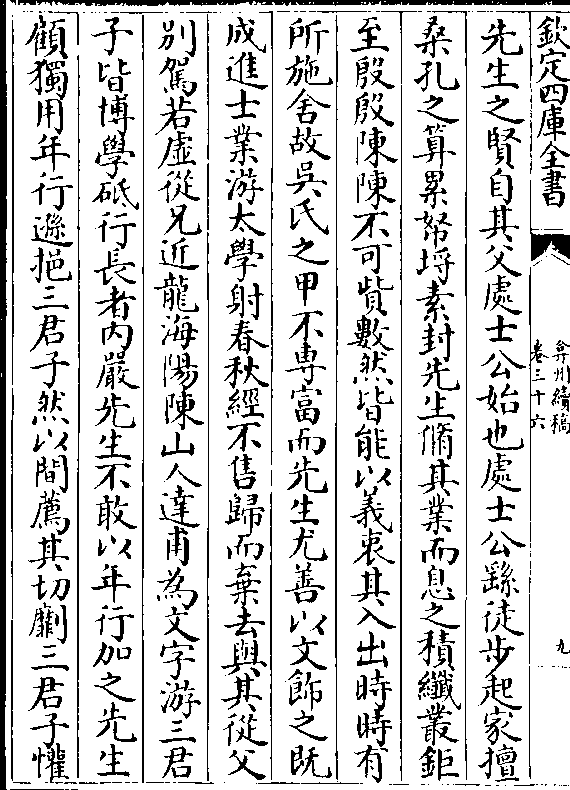 欽定四庫全書
弇州續稿
卷三十六
九
先生之賢自其父處士公始也處士公繇徒步起家擅
桑孔之算累帑埒素封先生脩其業而息之積纖叢鉅
至殷殷陳陳不可貲數然皆能以義衷其入出時時有
所施舍故吳氏之甲不専富而先生尤善以文飾之既
成進士業游太學射春秋經不售歸而棄去與其從父
別駕若虛從兄近龍海陽陳山人達甫為文字游三君
子皆博學砥行長者內嚴先生不敢以年行加之先生
顧獨用年行遜挹三君子然以間薦其切劘三君子懽